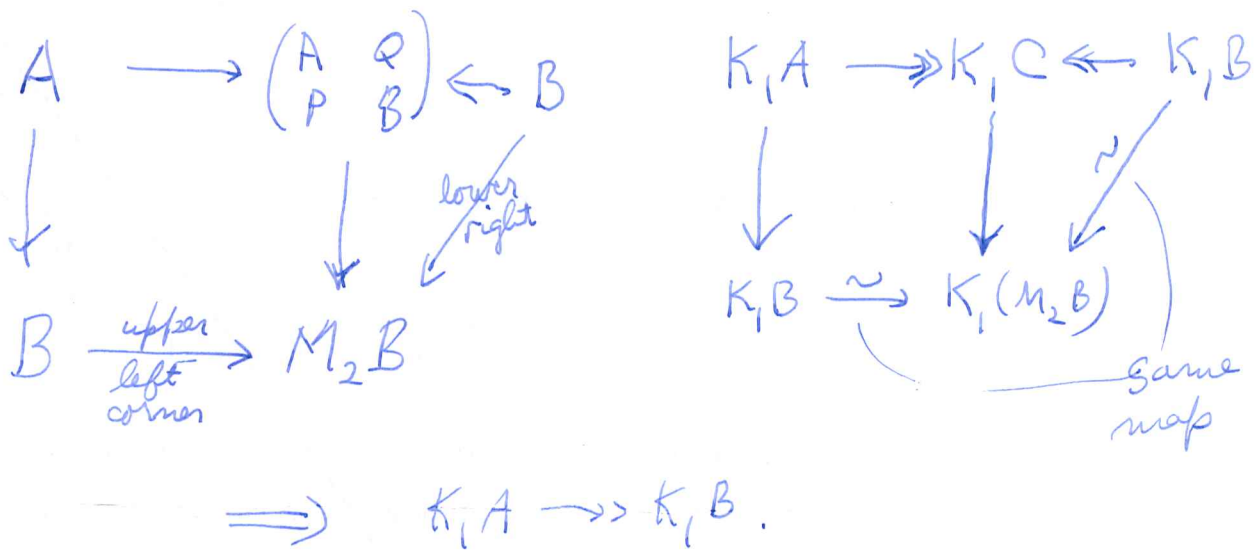 A → ( A Q ↞ B
P B )
lower right
B upper left corner → M₂B
K₁A ↠ K₁C ↞ K₁B
~
K₁B ~→ K₁(M₂B)
same map
⟹ K₁A ↠ K₁B .